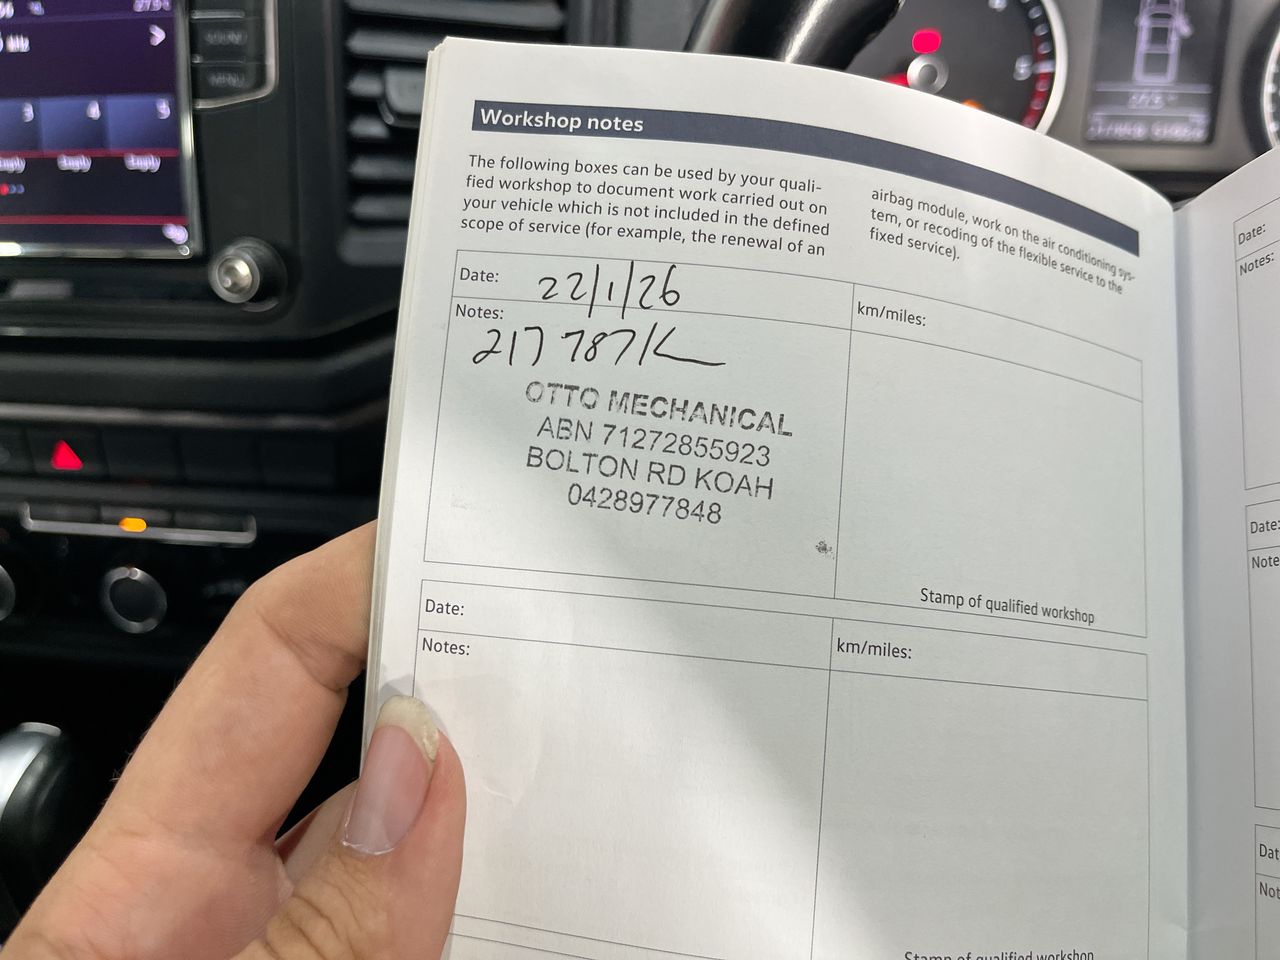 27.5
MHz
SOUND
MENU
3 4 5
Empty Empty Empty
Workshop notes
The following boxes can be used by your quali-
fied workshop to document work carried out on
your vehicle which is not included in the defined
scope of service (for example, the renewal of an
airbag module, work on the air conditioning sys-
tem, or recoding of the flexible service to the
fixed service).
Date: 22/1/26
km/miles:
Notes:
217 787 K
OTTO MECHANICAL
ABN 71272855923
BOLTON RD KOAH
0428977848
Stamp of qualified workshop
Date:
km/miles:
Notes:
Stamp of qualified workshop
Date:
Notes:
Date:
Note
Dat
Not